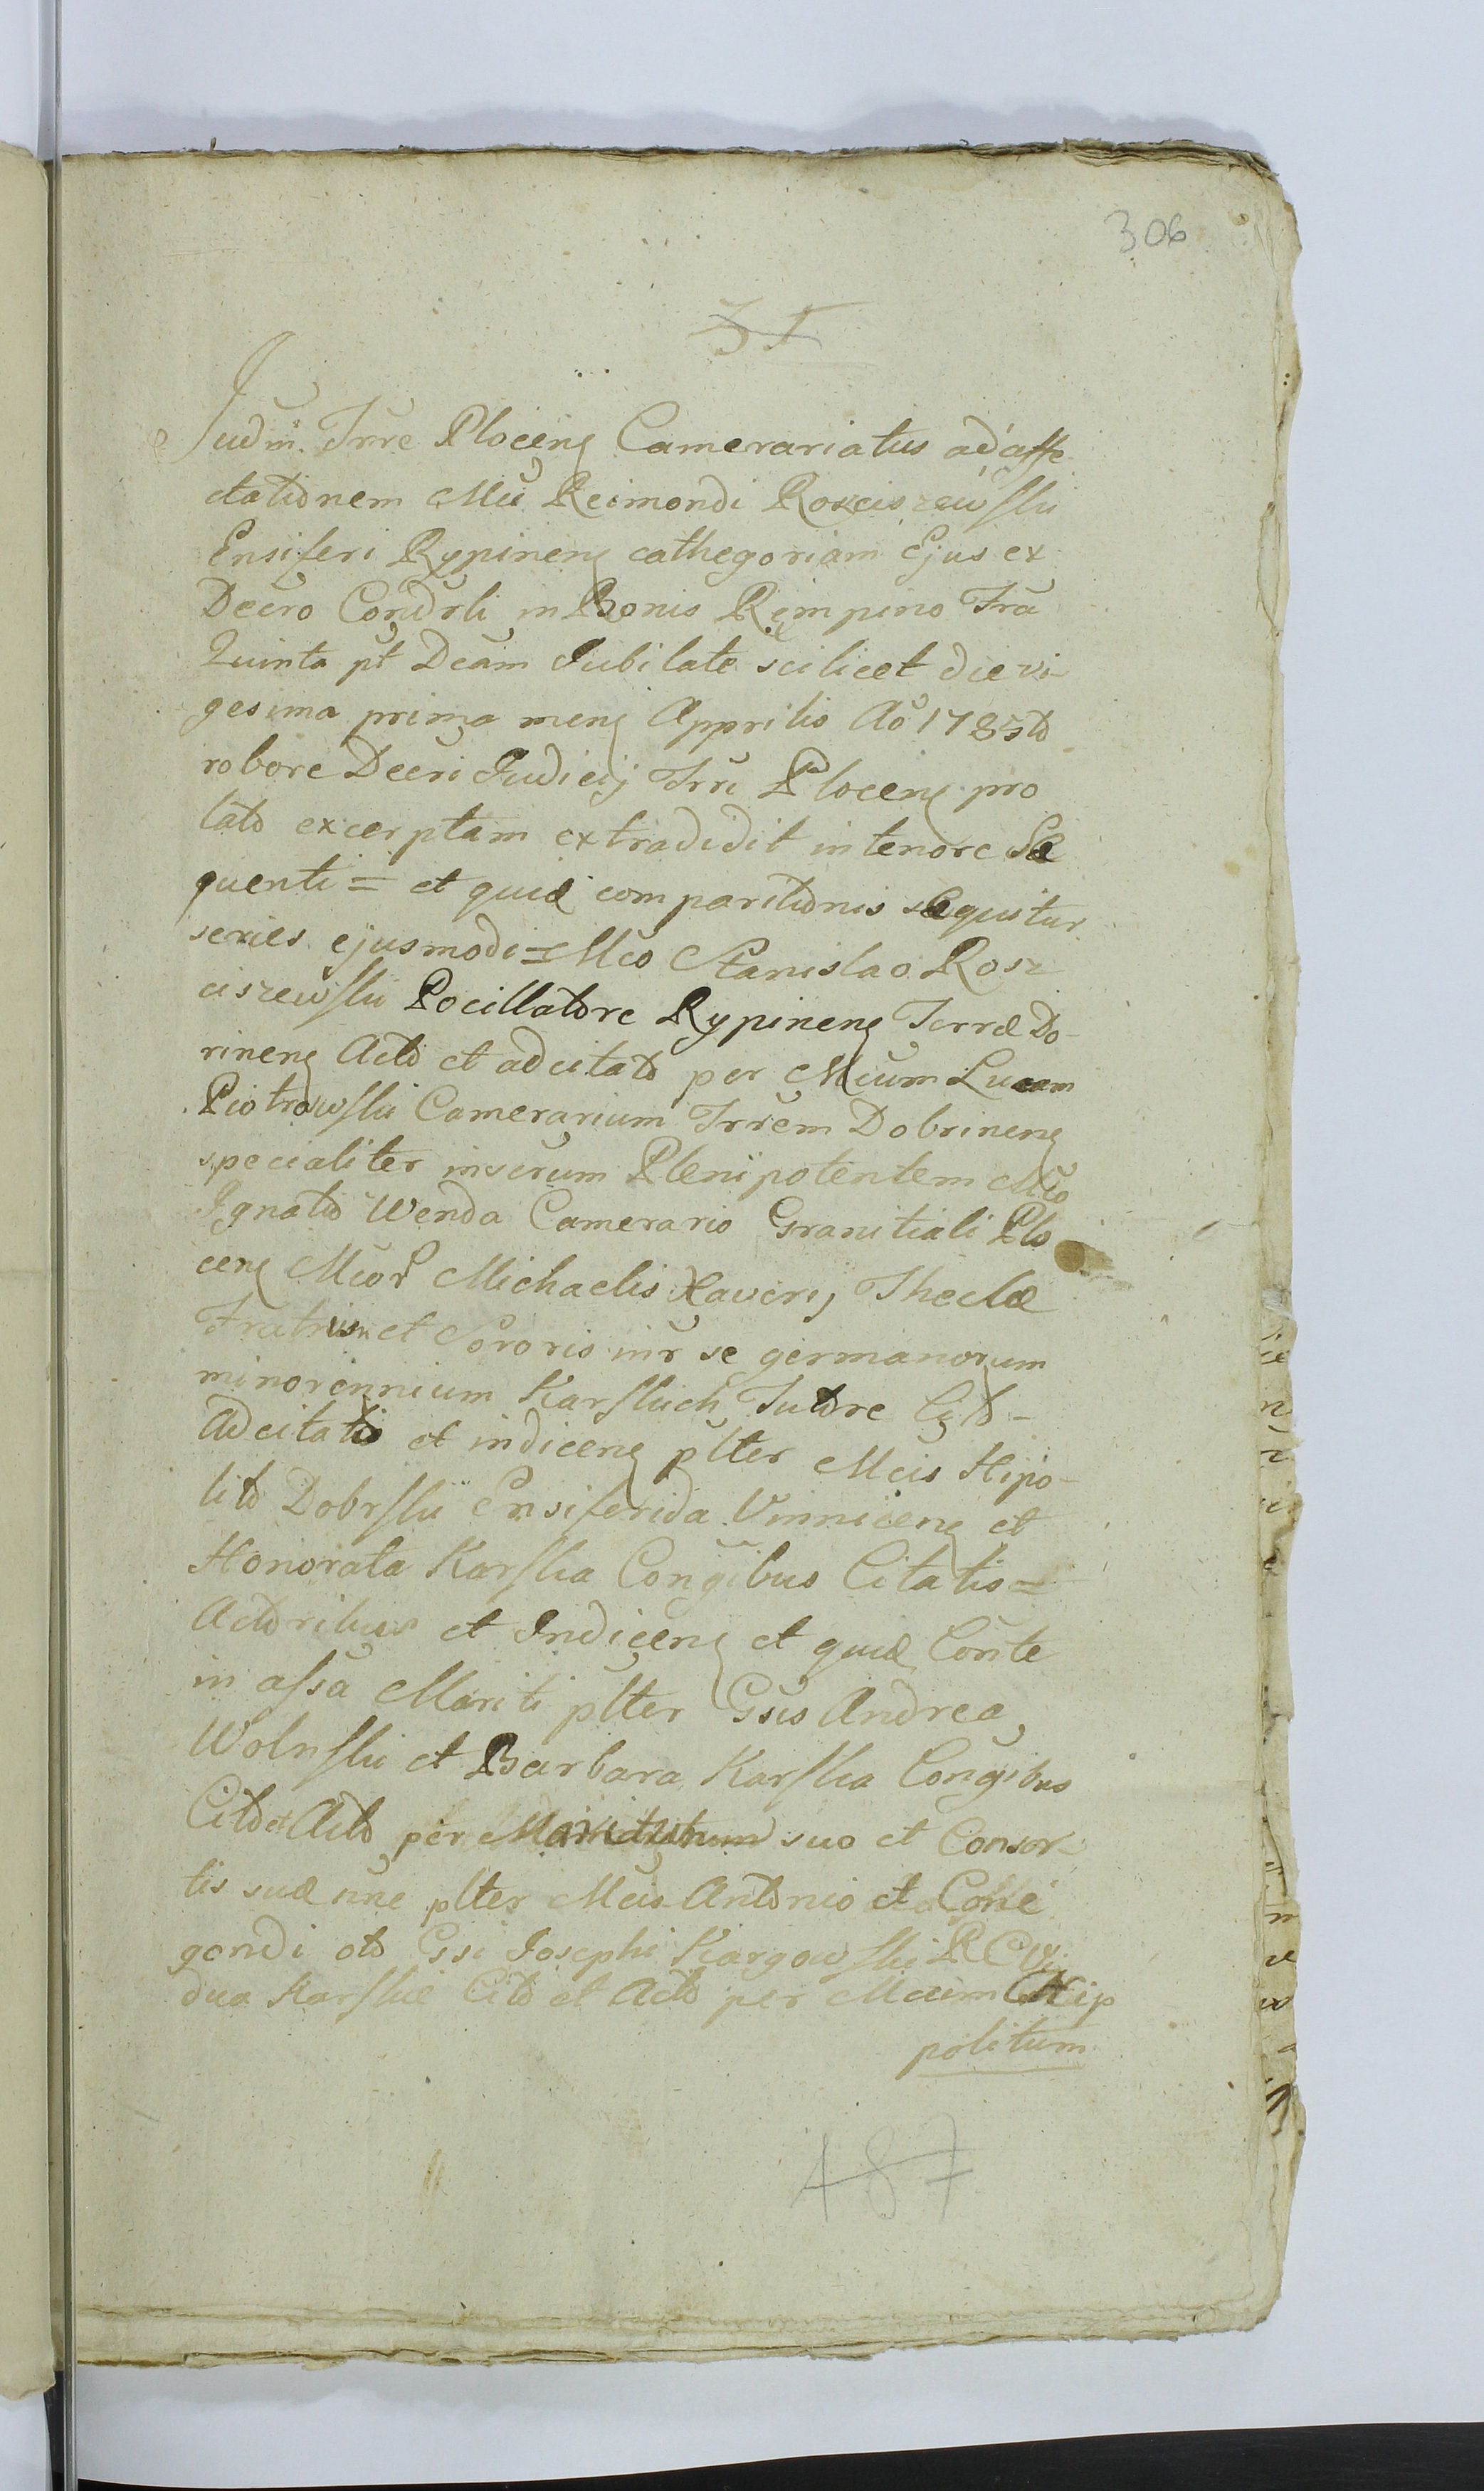 306
31
Judm Trre Plocens Camerariatus ad affe
ctationem Mci Reimondi Roscisrewski
Ensiferi Rypinens cathegoriam Ejus ex
Decro Condrli in Bonis Rempino Fra
Quinta pt Dcam Jubilate scilicet die vi-
gesima prima mens Apprilis Ao 1785to
robore Decri Judicij Trri Plocens pro
lato excerptam extradidit in tenore Se
quenti = et quidẽ comparitionis sequitur
series ejusmodi = Mco Stanislao Rosz
ciszewski Pocillatore Rypinens Terræ Do-
rinens Acto et adcitato per Mcum Lucam
Piotrowski Camerarium Trrem Dobrinens
specialiter inscrum Plenipotentem Mco
Ignatio Wenda Camerario Granitiali Plo
cens Mcor Michaelis Xaverij Theclæ
Fratrum et Sororis intr se germanorum
minorennium Karskich Tutore Cito-
Adcitato et indicens plter Mcis Hipo-
lito Dobrski Ensiferida Vinnicens et
Honorata Karska Congibus Citatis =
Actoribus et Indicens et quidẽ Conte
in assa Mariti plter Gsis Andrea
Wolnski et Barbara Karska Congibus
Cito et Acto per Maritum suo et Consor-
tis suæ nne plter Mcis Antonio et Cone
gondi oto Gsi Josephi Kargowski R C Vi
dua Karskie Cito et Acto per Mcum Hip
politum
487